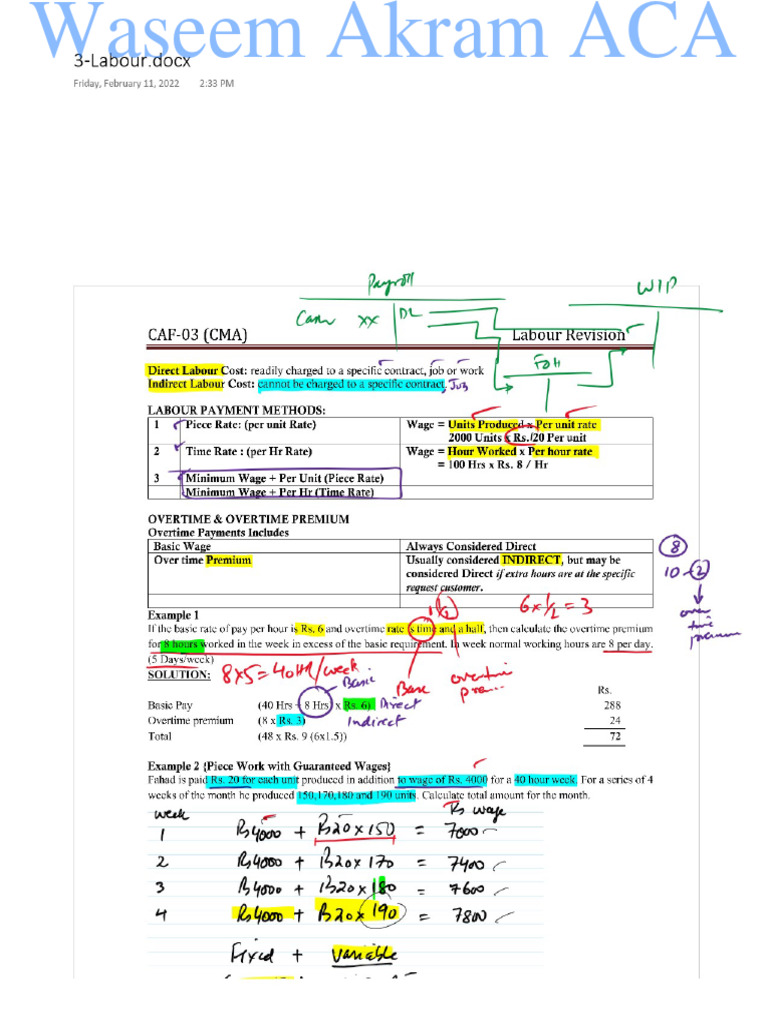 Waseem Akram ACA
3-Labour.docx
Friday, February 11, 2022 2:33 PM
Payroll
WIP
Cash xx DL
CAF-03 (CMA) Labour Revision
FOH
Direct Labour Cost: readily charged to a specific contract, job or work
Indirect Labour Cost: cannot be charged to a specific contract, Job
LABOUR PAYMENT METHODS:
1 Piece Rate: (per unit Rate) Wage = Units Produced x Per unit rate
2000 Units x Rs./20 Per unit
2 Time Rate : (per Hr Rate) Wage = Hour Worked x Per hour rate
= 100 Hrs x Rs. 8 / Hr
3 Minimum Wage + Per Unit (Piece Rate)
Minimum Wage + Per Hr (Time Rate)
OVERTIME & OVERTIME PREMIUM
Overtime Payments Includes
Basic Wage Always Considered Direct
8
Over time Premium Usually considered INDIRECT, but may be
considered Direct if extra hours are at the specific
request customer.
10 - 2
over
time
premium
Example 1
1 1/2
6 x 1/2 = 3
If the basic rate of pay per hour is Rs. 6 and overtime rate is time and a half, then calculate the overtime premium
for 8 hours worked in the week in excess of the basic requirement. In week normal working hours are 8 per day.
(5 Days/week)
SOLUTION: 8x5=40HR/week.
Basic
Base
overtime
pre...
Rs.
Basic Pay (40 Hrs + 8 Hrs x Rs. 6) Direct 288
Overtime premium (8 x Rs. 3) Indirect 24
Total (48 x Rs. 9 (6x1.5)) 72
Example 2 {Piece Work with Guaranteed Wages}
Fahad is paid Rs. 20 for each unit produced in addition to wage of Rs. 4000 for a 40 hour week. For a series of 4
weeks of the month he produced 150,170,180 and 190 units. Calculate total amount for the month.
week Rs wage
1 Rs4000 + Rs20x150 = 7000
2 Rs4000 + Rs20x170 = 7400
3 Rs4000 + Rs20x180 = 7600
4 Rs4000 + Rs20x190 = 7800
Fixed + Variable